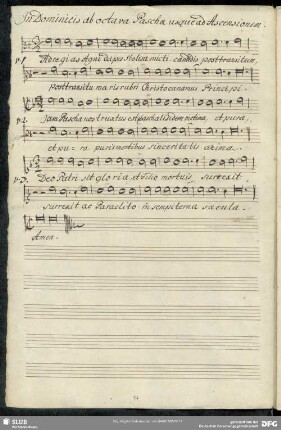 In Dominicis ab octava Paschæ usque ad Ascensionem.
V. 1. Ad regias Agni dapes Stolis amicti candidis post transitum
Post transitum maris rubri Christo canamus Principi.
V. 2. Jam Pascha nostrum est paschalis idem victima, et pura,
et pura puris mentibus sinceritatis azima.
V. 3. Deo Patri sit gloria et Filio à mortuis surrexit
surrexit ac Paraclito in sempiterna sæcula.
Amen.
SLUB
DFG